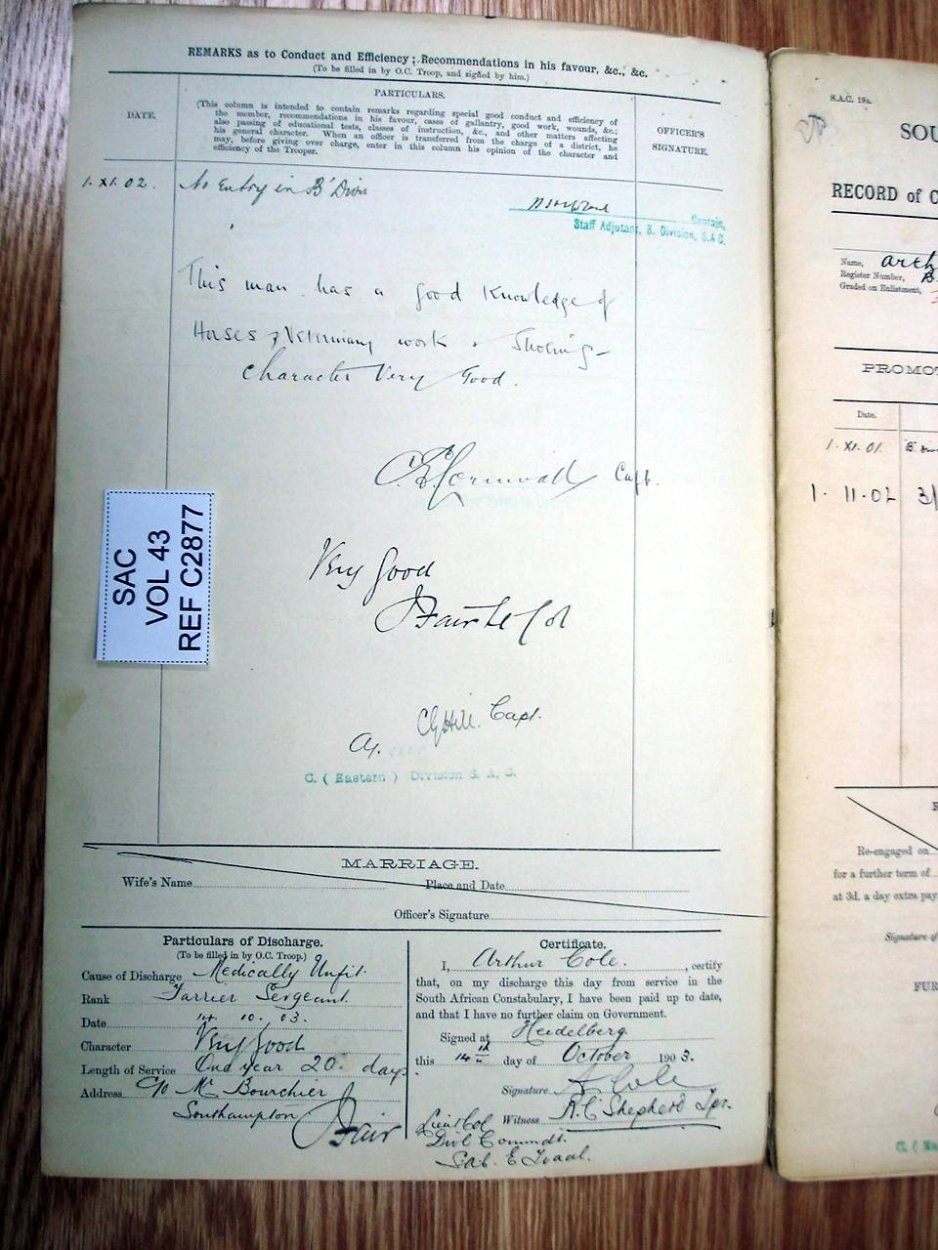 REMARKS as to Conduct and Efficiency; Recommendations in his favour, &c., &c.
(To be filled in by O.C. Troop, and signed by him.)
DATE.
PARTICULARS.
(This column is intended to contain remarks regarding special good conduct and efficiency of
the member, recommendations in his favour, cases of gallantry, good work, wounds, &c.;
also passing of educational tests, classes of instruction, &c., and other matters affecting
his general character. When an officer is transferred from the charge of a district, he
may, before giving over charge, enter in this column his opinion of the character and
efficiency of the Trooper.
OFFICER'S
SIGNATURE.
1. XI. 02. No Entry in B' Divn
Captain,
Staff Adjutant, B. Division, S.A.C.
This man has a good knowledge of
Horses & Veterinary work & Shoeing -
Character Very Good.
Capt.
Very Good
J Fair Lt Col
CG Hill. Capt.
C. ( Eastern ) Division S. A. C.
SAC
VOL 43
REF C2877
MARRIAGE.
Wife's Name
Place and Date
Officer's Signature
Particulars of Discharge.
(To be filled in by O.C. Troop.)
Cause of Discharge Medically Unfit.
Rank Farrier Sergeant.
Date 14. 10. 03.
Character Very Good
Length of Service One year 20. days
Address C/o Mr Bourchier
Southampton
J Fair
Lieut Col
Divl Commdt.
S.A.C. E Tvaal.
Certificate.
I, Arthur Cole. , certify
that, on my discharge this day from service in the
South African Constabulary, I have been paid up to date,
and that I have no further claim on Government.
Signed at Heidelberg
this 14th day of October 1903.
Signature A Cole
Witness R.C. Shepherd Tpr.
S.A.C. 19a.
SOU
RECORD of C
Name, Arth
Register Number, B.
Graded on Enlistment,
PROMOT
Date.
1. XI. 01.
1. 11. 02 3/
Re-engaged on
for a further term of
at 3d. a day extra pay
Signature of
FUR